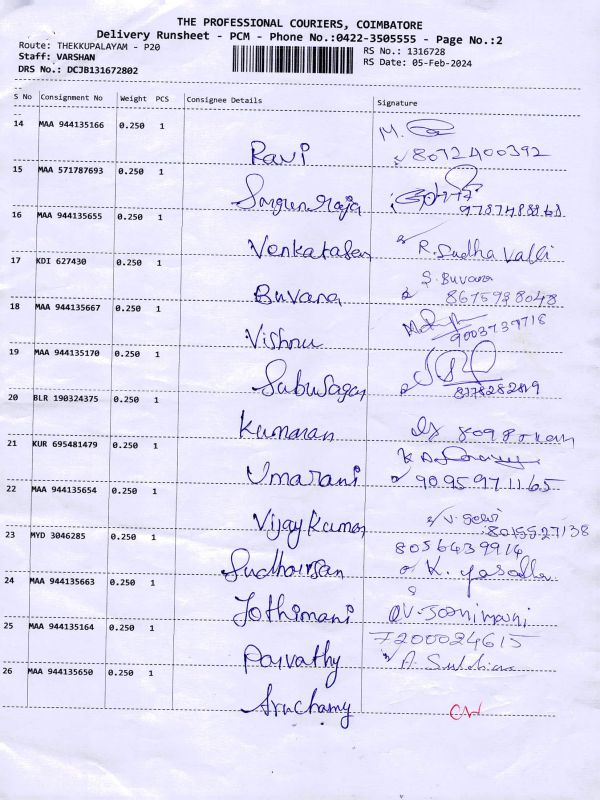 THE PROFESSIONAL COURIERS, COIMBATORE
Delivery Runsheet - PCM - Phone No.:0422-3505555 - Page No.:2
Route: THEKKUPALAYAM - P20
RS No.: 1316728
Staff: VARSHAN
RS Date: 05-Feb-2024
DRS No.: DCJB131672802
S No Consignment No Weight PCS Consignee Details Signature
14 MAA 944135166 0.250 1
Ravi 8072400392
15 MAA 571787693 0.250 1
16 MAA 944135655 0.250 1
Venkatasan R. Sudha Valli
17 KDI 627430 0.250 1
S. Buvana
Buvana 8675938048
18 MAA 944135667 0.250 1
Vishnu 9003739718
19 MAA 944135170 0.250 1
Sabusagar
20 BLR 190324375 0.250 1
Kumaran
21 KUR 695481479 0.250 1
Umarani 9095971165
22 MAA 944135654 0.250 1
V. Selvi
Vijay Kumar 8015527138
23 MYD 3046285 0.250 1
8056439914
Sudharsan K. Yasodha
24 MAA 944135663 0.250 1
Jothimani
25 MAA 944135164 0.250 1
7200024615
Parvathy
26 MAA 944135650 0.250 1
Aruchamy